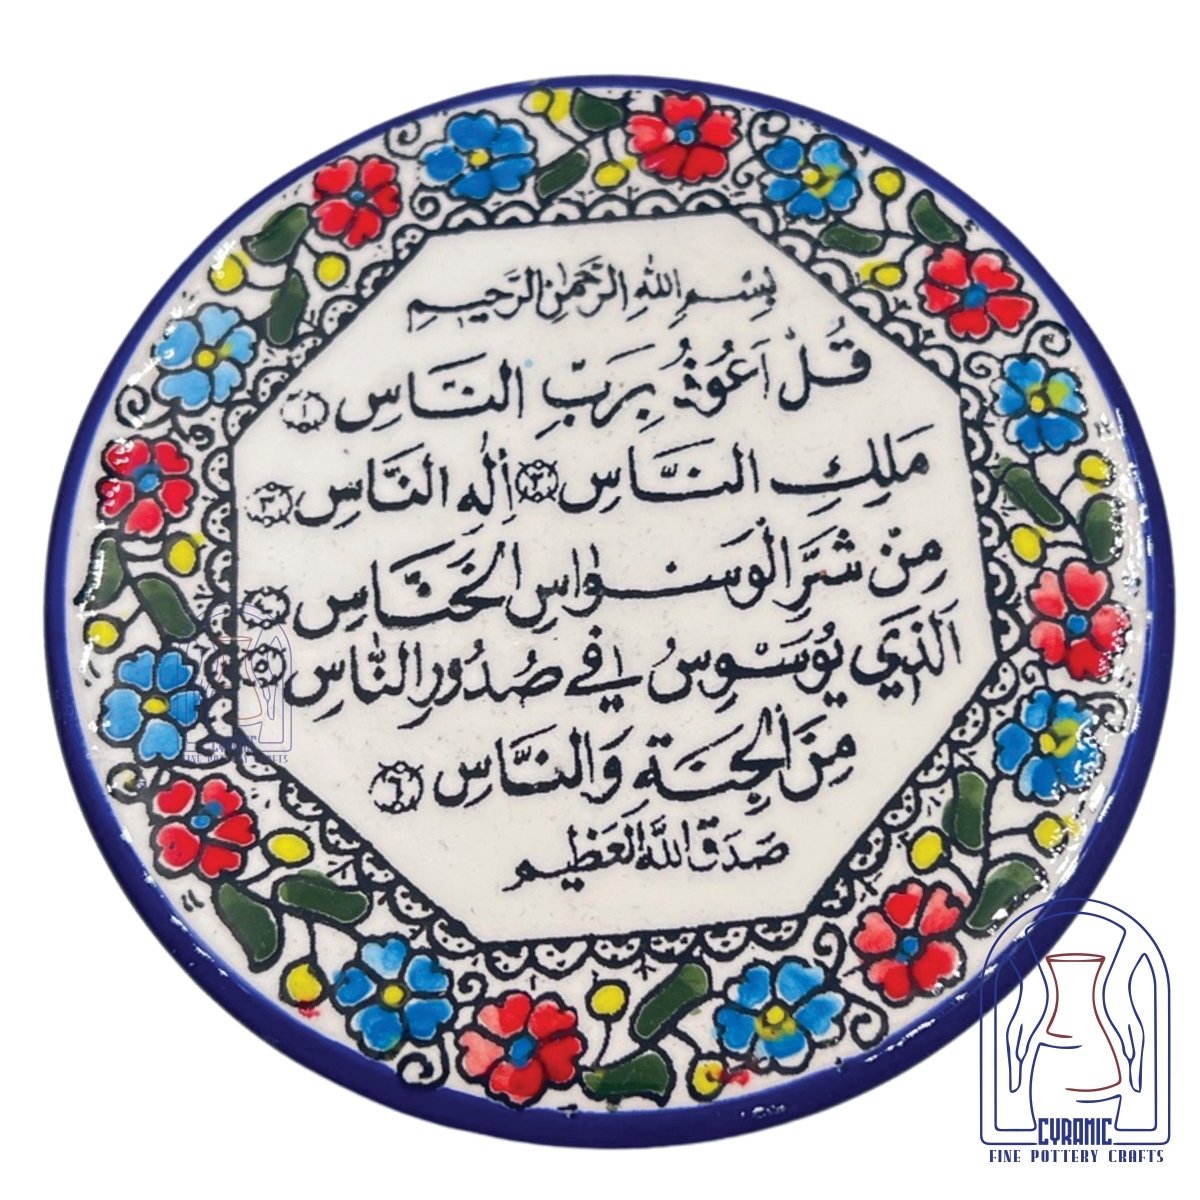 بِسْمِ اللهِ الرَّحْمٰنِ الرَّحِيمِ
قُلْ اَعُوْذُ بِرَبِّ النَّاسِ ١
مَلِكِ النَّاسِ ٢ اِلٰهِ النَّاسِ ٣
مِنْ شَرِّ الْوَسْوَاسِ الْخَنَّاسِ ٤
اَلَّذِي يُوَسْوِسُ فِي صُدُورِ النَّاسِ ٥
مِنَ الْجِنَّةِ وَالنَّاسِ ٦
صَدَقَ اللَّهُ الْعَظِيم
CYRAMIC
FINE POTTERY CRAFTS
CYRAMIC
FINE POTTERY CRAFTS